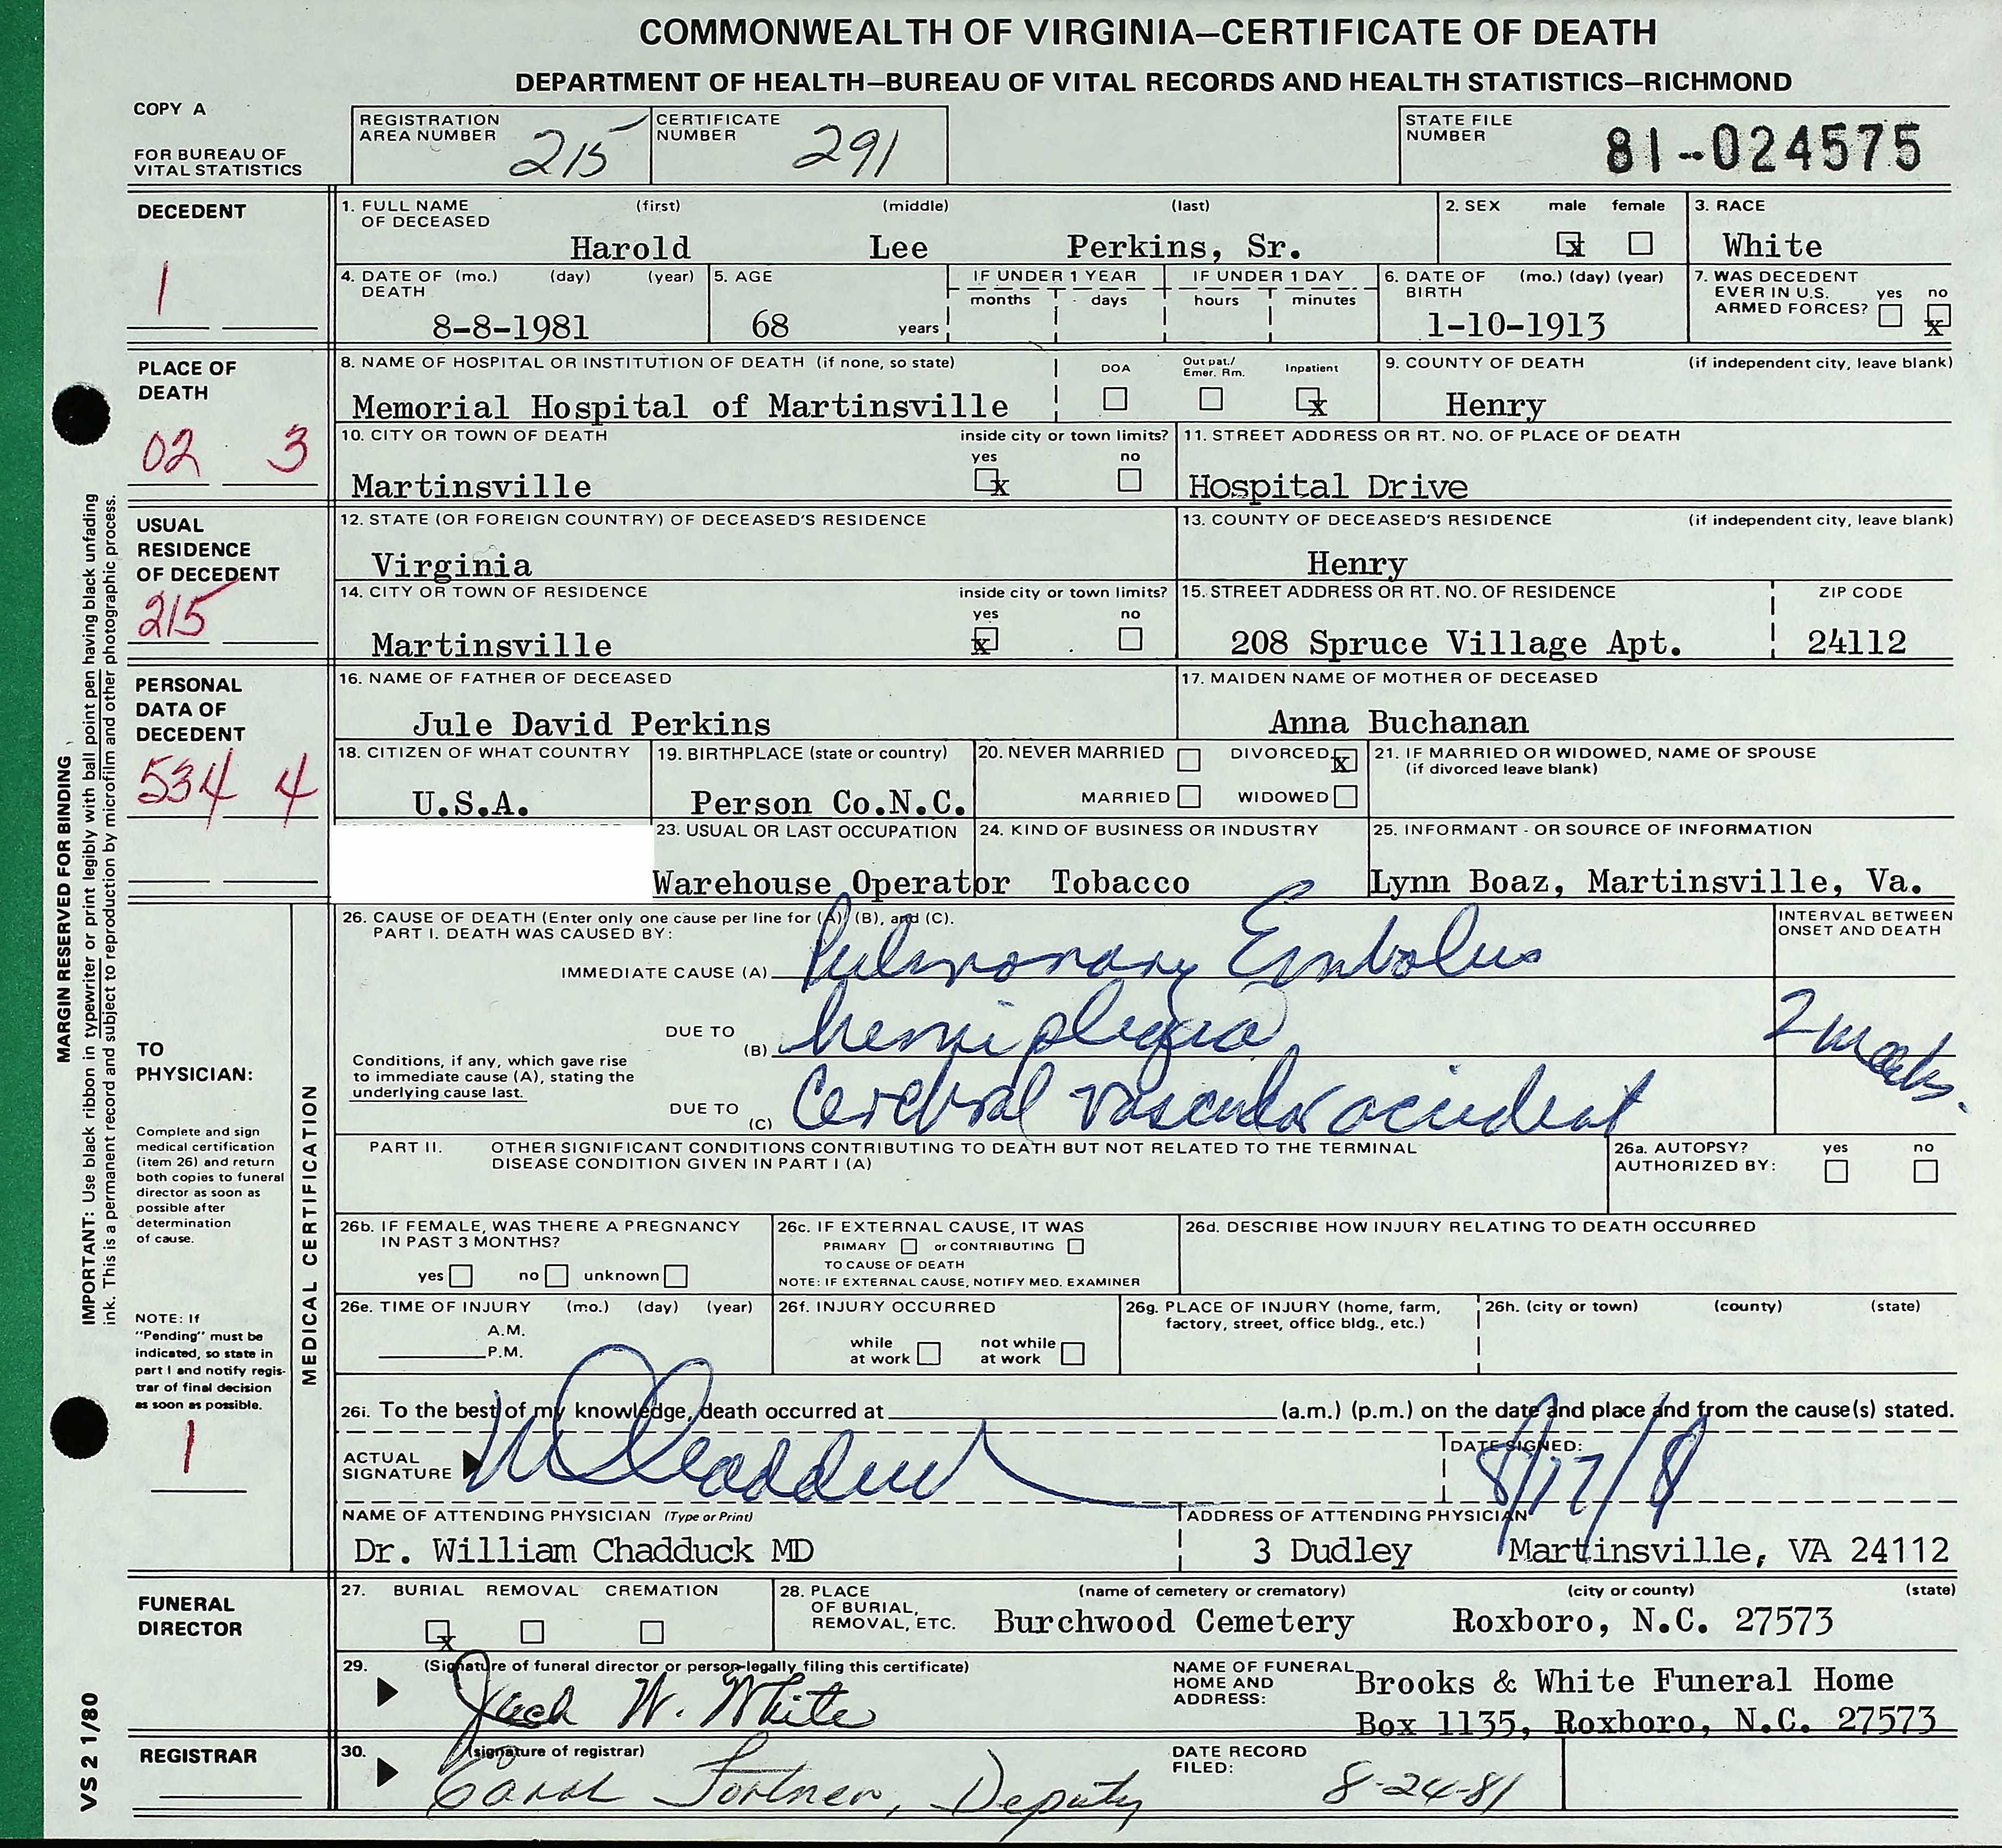 COMMONWEALTH OF VIRGINIA—CERTIFICATE OF DEATH
DEPARTMENT OF HEALTH—BUREAU OF VITAL RECORDS AND HEALTH STATISTICS—RICHMOND
COPY A
FOR BUREAU OF
VITAL STATISTICS
REGISTRATION
AREA NUMBER 215
CERTIFICATE
NUMBER 291
STATE FILE
NUMBER 81-024575
DECEDENT
1
1. FULL NAME (first) (middle) (last)
OF DECEASED
Harold Lee Perkins, Sr.
2. SEX male female
x
3. RACE
White
4. DATE OF (mo.) (day) (year)
DEATH
8-8-1981
5. AGE
68 years
IF UNDER 1 YEAR
months days
IF UNDER 1 DAY
hours minutes
6. DATE OF (mo.) (day) (year)
BIRTH
1-10-1913
7. WAS DECEDENT
EVER IN U.S. yes no
ARMED FORCES? x
PLACE OF
DEATH
02 3
8. NAME OF HOSPITAL OR INSTITUTION OF DEATH (if none, so state)
Memorial Hospital of Martinsville
DOA Out pat./ Emer. Rm. Inpatient
x
9. COUNTY OF DEATH (if independent city, leave blank)
Henry
10. CITY OR TOWN OF DEATH inside city or town limits?
yes no
Martinsville x
11. STREET ADDRESS OR RT. NO. OF PLACE OF DEATH
Hospital Drive
USUAL
RESIDENCE
OF DECEDENT
215
12. STATE (OR FOREIGN COUNTRY) OF DECEASED'S RESIDENCE
Virginia
13. COUNTY OF DECEASED'S RESIDENCE (if independent city, leave blank)
Henry
14. CITY OR TOWN OF RESIDENCE inside city or town limits?
yes no
Martinsville x
15. STREET ADDRESS OR RT. NO. OF RESIDENCE ZIP CODE
208 Spruce Village Apt. 24112
PERSONAL
DATA OF
DECEDENT
534 4
16. NAME OF FATHER OF DECEASED
Jule David Perkins
17. MAIDEN NAME OF MOTHER OF DECEASED
Anna Buchanan
18. CITIZEN OF WHAT COUNTRY
U.S.A.
19. BIRTHPLACE (state or country)
Person Co.N.C.
20. NEVER MARRIED DIVORCED x
MARRIED WIDOWED
21. IF MARRIED OR WIDOWED, NAME OF SPOUSE
(if divorced leave blank)
23. USUAL OR LAST OCCUPATION
Warehouse Operator
24. KIND OF BUSINESS OR INDUSTRY
Tobacco
25. INFORMANT - OR SOURCE OF INFORMATION
Lynn Boaz, Martinsville, Va.
TO
PHYSICIAN:
Complete and sign
medical certification
(item 26) and return
both copies to funeral
director as soon as
possible after
determination
of cause.
NOTE: If
"Pending" must be
indicated, so state in
part I and notify regis-
trar of final decision
as soon as possible.
1
MEDICAL CERTIFICATION
26. CAUSE OF DEATH (Enter only one cause per line for (A), (B), and (C).
PART I. DEATH WAS CAUSED BY:
INTERVAL BETWEEN
ONSET AND DEATH
IMMEDIATE CAUSE (A) Pulmonary Embolus
DUE TO
(B) hemiplegia
2 weeks.
Conditions, if any, which gave rise
to immediate cause (A), stating the
underlying cause last.
DUE TO
(C) Cerebral vascular accident
PART II. OTHER SIGNIFICANT CONDITIONS CONTRIBUTING TO DEATH BUT NOT RELATED TO THE TERMINAL
DISEASE CONDITION GIVEN IN PART I (A)
26a. AUTOPSY? yes no
AUTHORIZED BY:
26b. IF FEMALE, WAS THERE A PREGNANCY
IN PAST 3 MONTHS?
yes no unknown
26c. IF EXTERNAL CAUSE, IT WAS
PRIMARY or CONTRIBUTING
TO CAUSE OF DEATH
NOTE: IF EXTERNAL CAUSE, NOTIFY MED. EXAMINER
26d. DESCRIBE HOW INJURY RELATING TO DEATH OCCURRED
26e. TIME OF INJURY (mo.) (day) (year)
A.M.
P.M.
26f. INJURY OCCURRED
while at work not while at work
26g. PLACE OF INJURY (home, farm,
factory, street, office bldg., etc.)
26h. (city or town) (county) (state)
26i. To the best of my knowledge, death occurred at (a.m.) (p.m.) on the date and place and from the cause(s) stated.
ACTUAL
SIGNATURE W Chadduck
DATE SIGNED:
8/17/8
NAME OF ATTENDING PHYSICIAN (Type or Print)
Dr. William Chadduck MD
ADDRESS OF ATTENDING PHYSICIAN
3 Dudley Martinsville, VA 24112
FUNERAL
DIRECTOR
27. BURIAL REMOVAL CREMATION
x
28. PLACE (name of cemetery or crematory) (city or county) (state)
OF BURIAL,
REMOVAL, ETC. Burchwood Cemetery Roxboro, N.C. 27573
29. (Signature of funeral director or person legally filing this certificate)
Jack W. White
NAME OF FUNERAL
HOME AND
ADDRESS:
Brooks & White Funeral Home
Box 1135, Roxboro, N.C. 27573
REGISTRAR
30. (signature of registrar)
Carol Fortner, Deputy
DATE RECORD
FILED: 8-24-81
MARGIN RESERVED FOR BINDING
IMPORTANT: Use black ribbon in typewriter or print legibly with ball point pen having black unfading
ink. This is a permanent record and subject to reproduction by microfilm and other photographic process.
VS 2 1/80